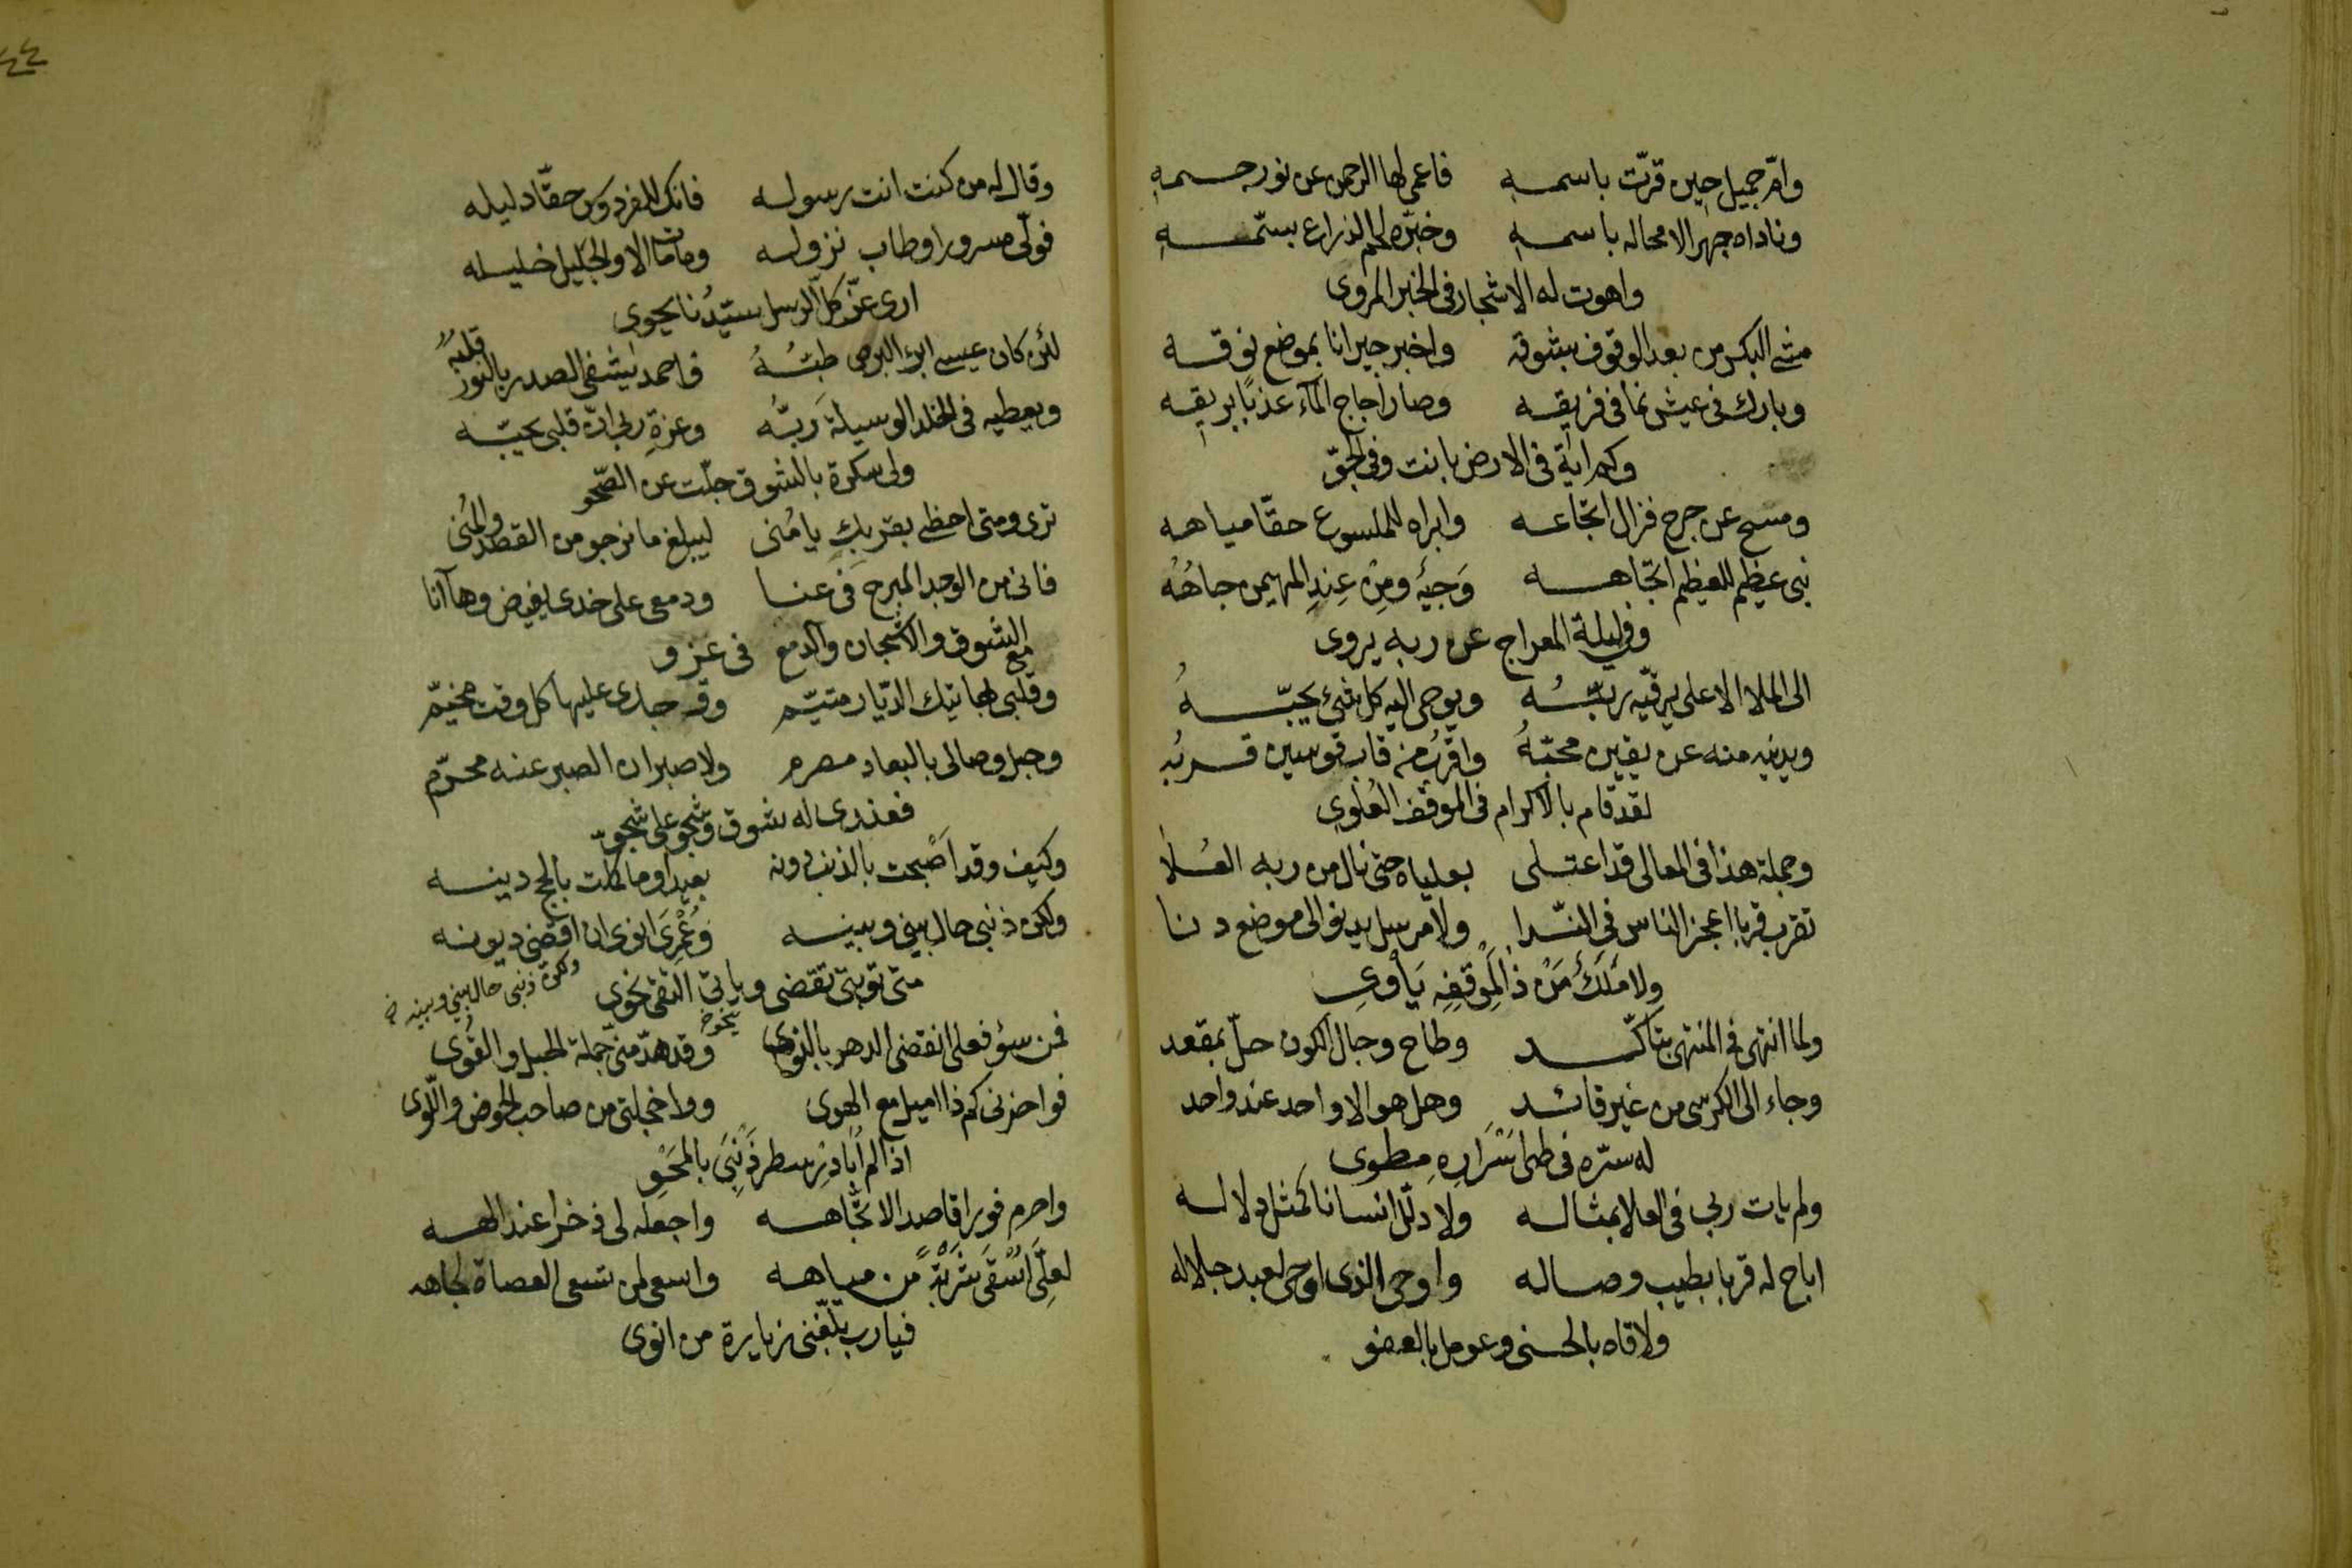 وامّ جميل حين قرّت باسمهِ فاعمى لها الرحمن عن نور جسمهِ
وناداه جهرا لا محاله باسمهِ وخبّره لحم الذراع بسمّهِ
واهوت له الاشجار في الخبر المروى
مشى البكر من بعد الوقوف بشوقه واخبر جيرانا بموضع نوقه
وبارك في عيش نما في فريقه وصار أجاج الماء عذبًا بريقهِ
وكم اية في الارض بانت وفي الجوّ
ومسح عن جرح فزال اتجاعه وابراه للملسوع حقّا مياهه
نبى عظيم للعظيم اتجاهه وَجيهٌ ومِنْ عِندِ المهيمن جاهُهُ
وفى ليلة المعراج عن ربه يروى
الى الملا الاعلى يرقيّه ربّهُ ويوحى اليه كل شئ يحبّهُ
ويدنيه منه عن يقين محبّهُ واقربُ من قاب قوسين قربُه
لقد قام بالاكرام في الموقف العُلوي
وجملة هذا في المعالى قد اعتلى بعلياه حتى نال من ربه العُلا
تقرب قربا اعجز الناس في النّدا ولا مرسل يدنو الى موضع دنا
ولا مَلَكٌ مَنْ ذا لِموقفِه يَأوِي
ولما انتهى في المنتهى بتأكّد وطاح وجال الكون حلّ بمقعد
وجاء الى الكرسى من غير قائد وهل هو الا واحد عند واحد
له سرّه في طى اسْرَارِه مطوى
ولم يات ربي في العلا بمثاله ولا دلّل انسانا كمثل دلاله
اباح له قربا بطيب وصاله واوحى الذى اوحى لعبد جلاله
ولاقاه بالحسنى وعومل بالعفو
٤٤
وقال له من كنت انت رسوله فانك للفردوس حقّا دليله
فولّى مسرورا وطاب نزوله وما مات الا والجليل خليله
ارى عزّ كلّ الرسل سيّدُنا يحوى
لئن كان عيسى ابرء البرص طبّهُ فاحمد يشفى الصدر بالنور قلبُه
ويعطيه في الخلد الوسيلة رَبُّه وعزةِ ربي انّ قلبى يحبّه
ولى سكرة بالشوق جلّت عن الصّحو
ترى ومتى احظى بقربكِ يا مُنى ليبلغ ما نرجو من القصد والمُنى
فانى من الوجد المبرح في عنا ودمعى على خدى يفيض وها انا
مع الشوق والاشجان والدمع في غزو
وقلبى لهاتيك الدّيار متيّم وقد جدى عليها كل وقت مخيّم
وحبل وصالى بالبعاد مصرم ولا صبر ان الصبر عنه محرّم
فعندى له شوق وشجو على شجوّ
وكيف وقد اصْبحت بالذنب دونه بعيدا وما كلت بالحج دينه
ولكن ذنبى حال بينى وبينه وعُمْرِى انوى ان اقضى ديونه
متى توبتى تقضى وياتي التقى نحوى
ولكن ذنبى حال بينى وبينه خ
فمن سؤ فعلى انقضى الدهر بالنوى وقد هدّ منى جملة الحيل والقُوى
فواحزنى كم ذا اميل مع الهوى وواخجلتى من صاحب الحوض واللّوى
اذا لم اُبادِر سطر ذَنْبِى بالمَحْوِ
واحرم فورا قاصد الاتجاهه واجعله لى ذخرا عند الهه
لعلّى اُسْقى شَرْبَةً من مياهه واسعى لمن تسعى العصاة لجاهه
فيارب بلّغنى زيارة من انوى